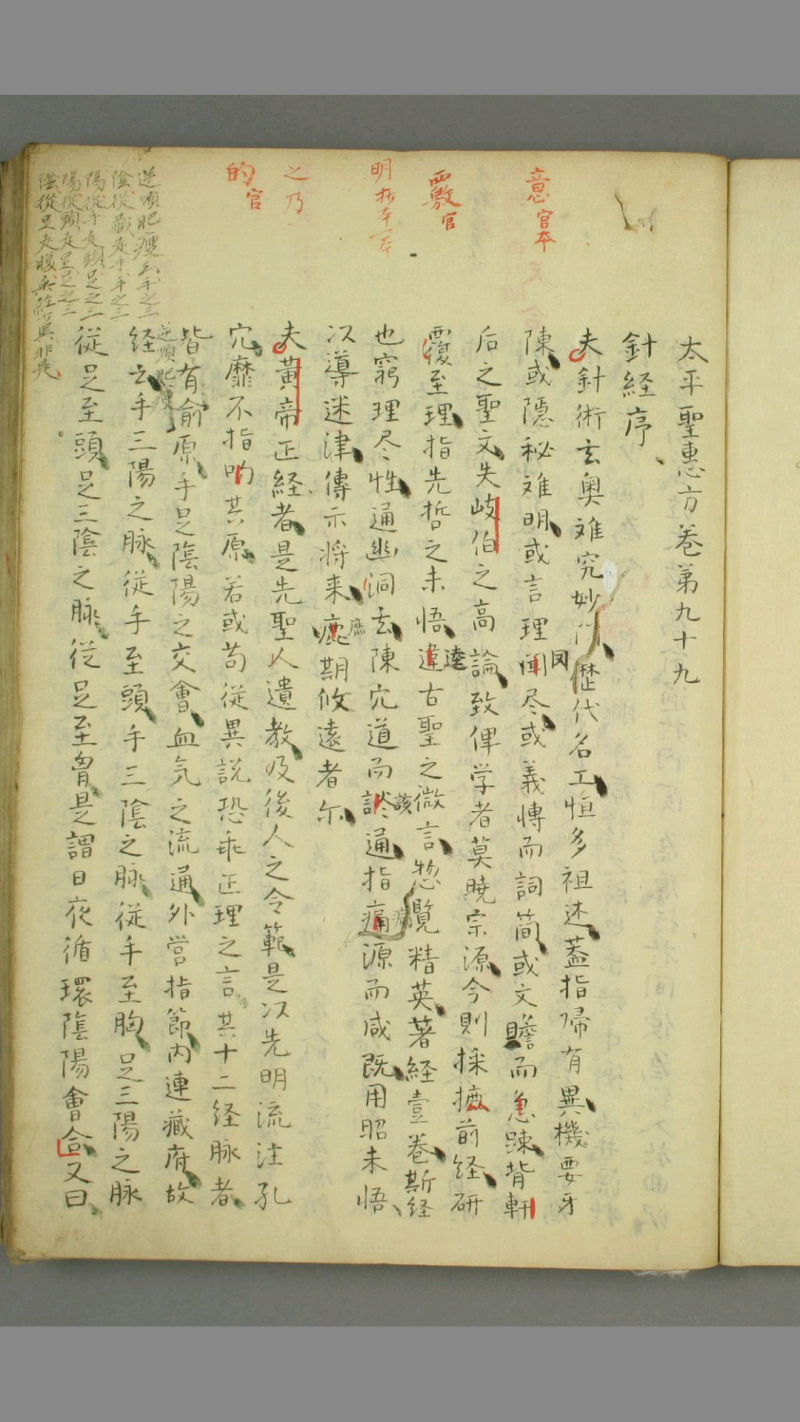 太平聖惠方卷第九十九
針経序
夫針術玄奥难究妙门歴代名工恒多祖述蓋指帰有異機要牙
陳或隠秘难明或言理闻尽或義博而詞简或文贍而急踈背軒
后之聖文失岐伯之高論致俾学者莫暁宗源今則採摭前経研
覆至理指先哲之未悟違古聖之微言惣覧精英著経壹卷斯経
也窮理尽性通幽洞玄陳穴道而該通指痛源而咸既用昭未悟
以導迷津傳示将来庶期攸遠者尔
夫黄帝正経者是先聖人遺教及後人之令範是以先明流注孔
穴靡不指呐其原若或苟従異説恐乖正理之言其十二経脉者
皆有俞原手足陰陽之交會血気之流通外営指節内連藏府故
経云手三陽之脉従手至頭手三陰之脉従手至胸足三陽之脉
従足至頭足三陰之脉従足至胷是謂日夜循環陰陽會合又曰
意官本
覈官
明抄本一本
之乃
的官
逆順肥瘦云手之三
陰従藏走手手之三
陽従手走頭足之三
陽従頭走足足之三
陰従足走腹
逆順肥瘦